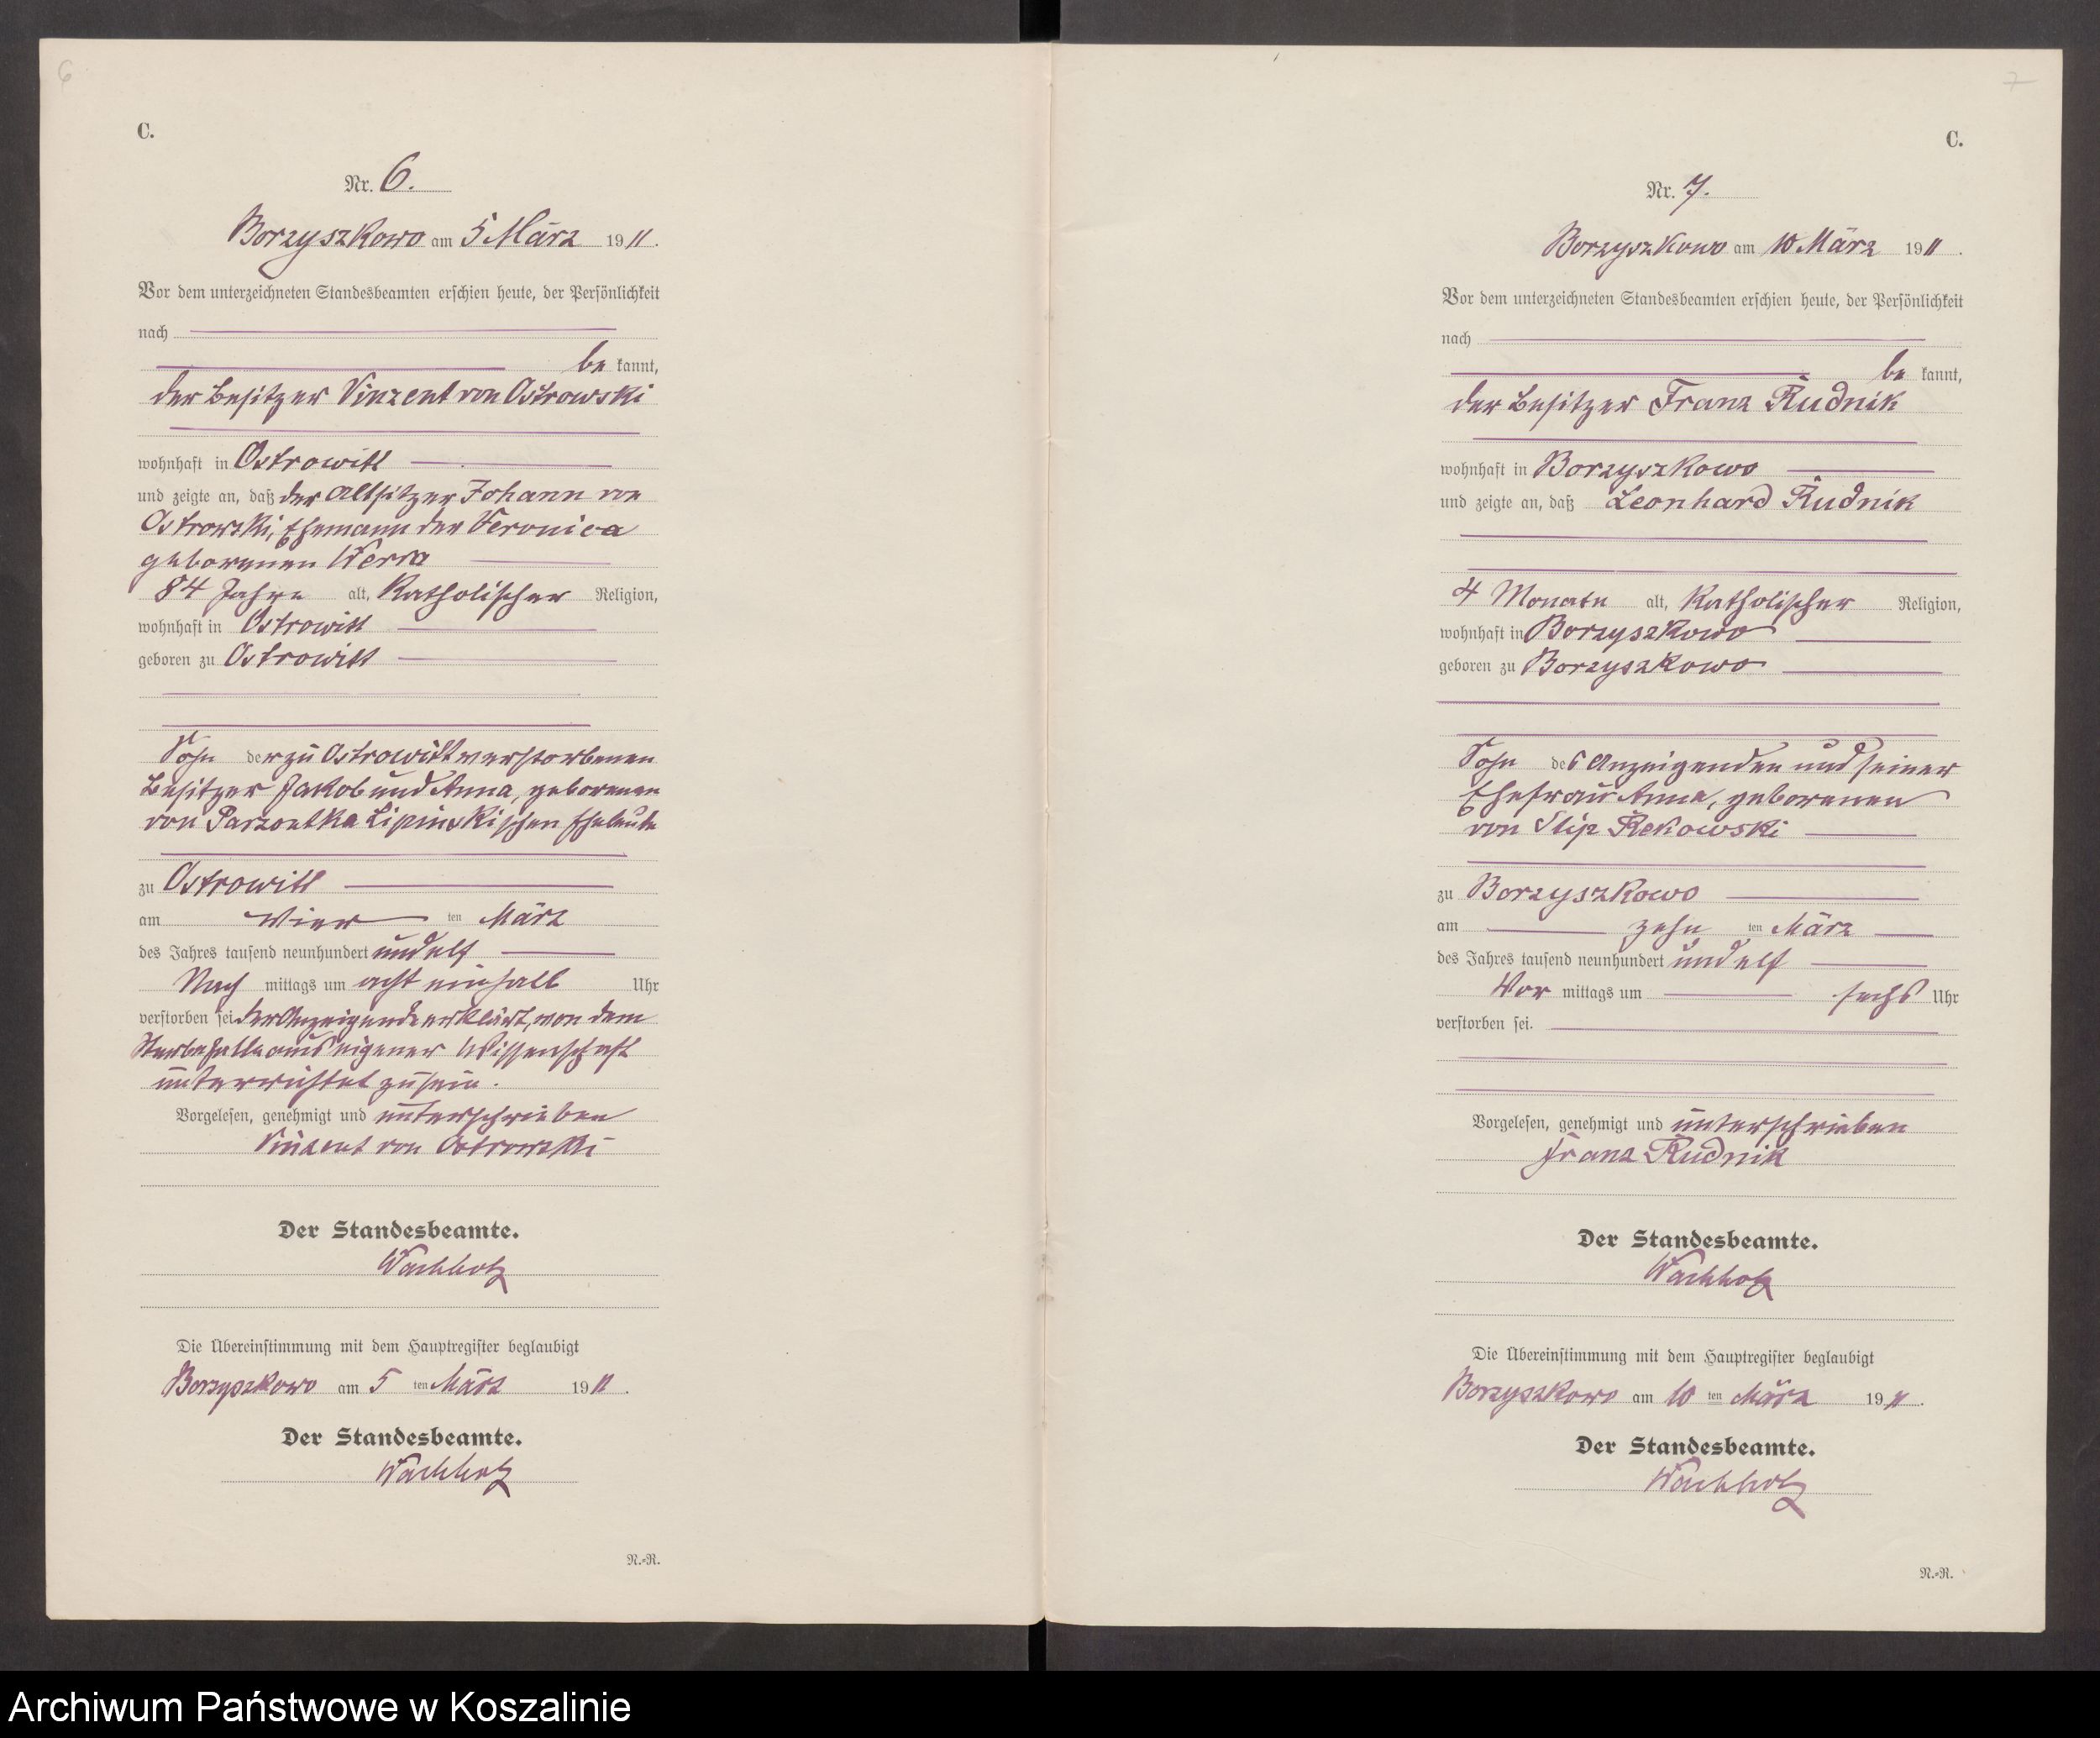 6
C.
Nr. 6.
Borzyszkowo am 5 März 1911.
Vor dem unterzeichneten Standesbeamten erschien heute, der Persönlichkeit
nach
be kannt,
der Besitzer Vinzent von Ostrowski
wohnhaft in Ostrowitt
und zeigte an, daß der Altsitzer Johann von
Ostrowski, Ehemann der Veronica
geborenen Werra
84 Jahre alt, Katholischer Religion,
wohnhaft in Ostrowitt
geboren zu Ostrowitt
Sohn der zu Ostrowitt verstorbenen
Besitzer Jakob und Anna, geborenen
von Parzontka Lipinskischen Eheleute
zu Ostrowitt
am vier ten März
des Jahres tausend neunhundert und elf
Nach mittags um acht einhalb Uhr
verstorben sei der Anzeigende erklärt, von dem
Sterbefalle aus eigener Wissenschaft
unterrichtet zu sein.
Vorgelesen, genehmigt und unterschrieben
Vinzent von Ostrowski
Der Standesbeamte.
Wachholz
Die Übereinstimmung mit dem Hauptregister beglaubigt
Borzyszkowo am 5 ten März 1911.
Der Standesbeamte.
Wachholz
N.-R.
7
C.
Nr. 7.
Borzyszkowo am 10 März 1911.
Vor dem unterzeichneten Standesbeamten erschien heute, der Persönlichkeit
nach
be kannt,
der Besitzer Franz Rudnik
wohnhaft in Borzyszkowo
und zeigte an, daß Leonhard Rudnik
4 Monate alt, Katholischer Religion,
wohnhaft in Borzyszkowo
geboren zu Borzyszkowo
Sohn des Anzeigenden und seiner
Ehefrau Anna, geborenen
von Slip Rekowski
zu Borzyszkowo
am zehn ten März
des Jahres tausend neunhundert und elf
Vor mittags um sechs Uhr
verstorben sei.
Vorgelesen, genehmigt und unterschrieben
Franz Rudnik
Der Standesbeamte.
Wachholz
Die Übereinstimmung mit dem Hauptregister beglaubigt
Borzyszkowo am 10 ten März 1911.
Der Standesbeamte.
Wachholz
N.-R.
Archiwum Państwowe w Koszalinie